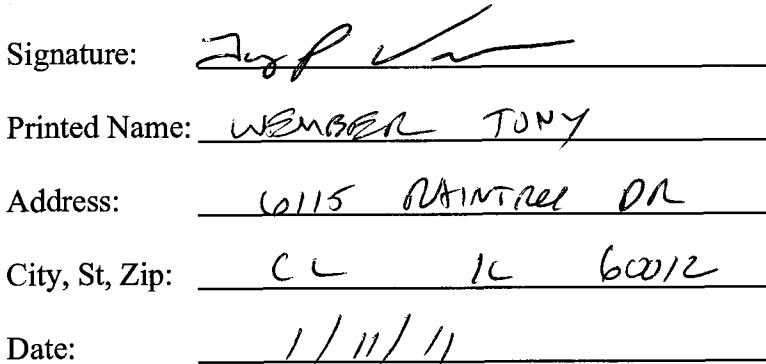 Signature:
Printed Name: WEMBER TONY
Address: 6115 RAINTREE DR
City, St, Zip: CL IL 60012
Date: 1/11/11